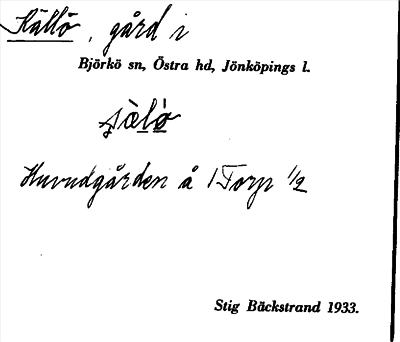 Källö, gård i
Björkö sn, Östra hd, Jönköpings l.
Huvudgården å Torp 1/2
Stig Bäckstrand 1933.